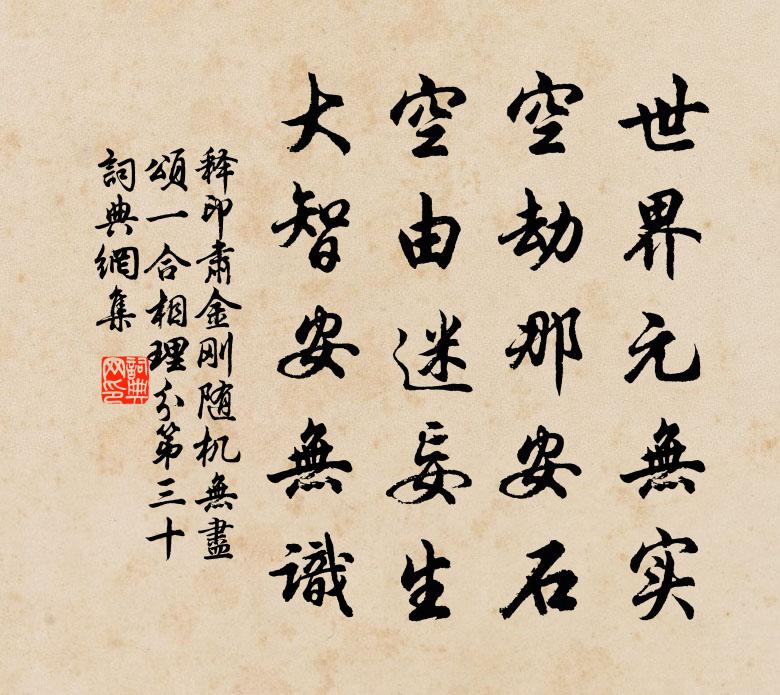 世界元無实
空劫那安石
空由迷妄生
大智安無識
释印肃金刚随机無盡
頌一合相理分第三十
詞典網集
詞典网印